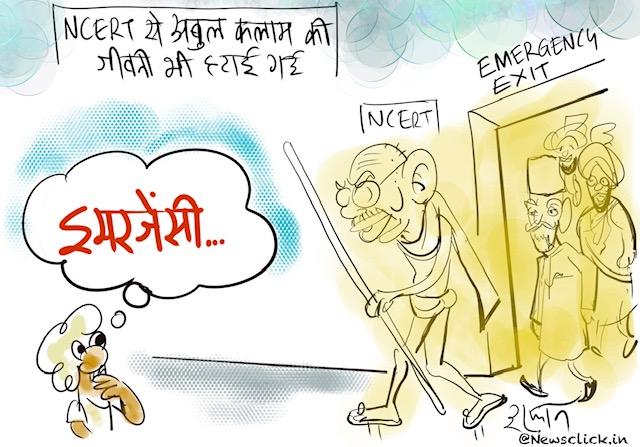 NCERT से अबुल कलाम की
जीवनी भी हटाई गई
EMERGENCY
EXIT
NCERT
इमरजेंसी...
इरफान
@Newsclick.in